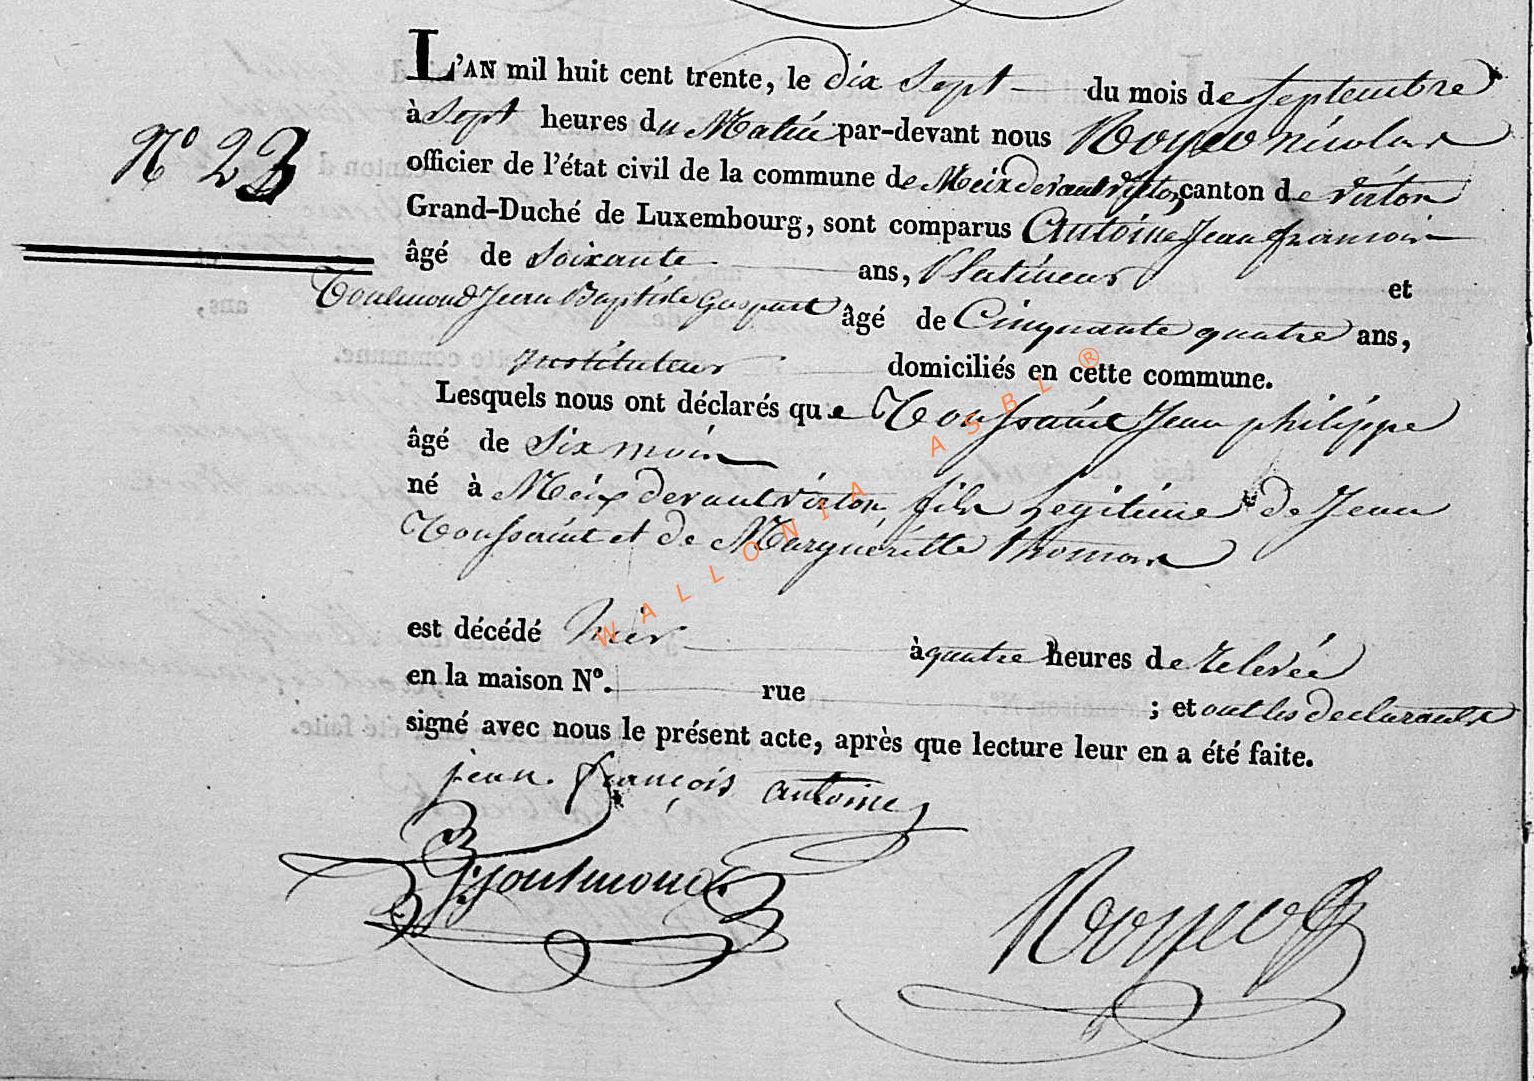 L'AN mil huit cent trente, le dix sept du mois de septembre
N° 23
à sept heures du Matin par-devant nous nicolas
officier de l'état civil de la commune de Meix devant virton, canton de virton
Grand-Duché de Luxembourg, sont comparus Antoine Jean françois
âgé de soixante ans, Platineur et
Toulmond Jean Baptiste Gaspart âgé de Cinquante quatre ans,
instituteur domiciliés en cette commune.
Lesquels nous ont déclarés que Toussaint Jean philippe
âgé de Six mois
né à Meix devant virton, fils Legitime de Jean
Toussaint et de Margueritte thomas
est décédé hier à quatre heures de relevée
en la maison N°. rue ; et ont les declarants
signé avec nous le présent acte, après que lecture leur en a été faite.
jean françois antoine
Toulmond
WALLONIA ASBL ®